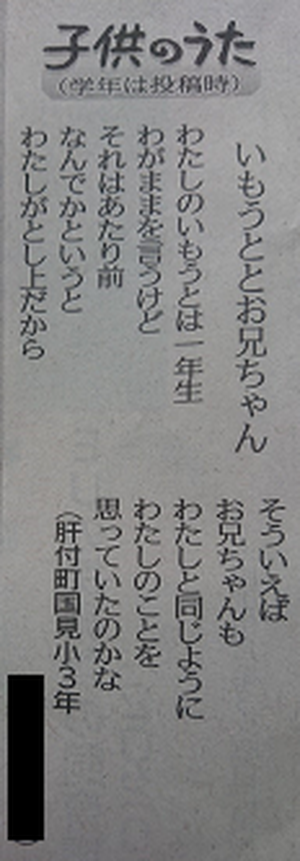 子供のうた
(学年は投稿時)
いもうととお兄ちゃん
わたしのいもうとは一年生
わがままを言うけど
それはあたり前
なんでかというと
わたしがとし上だから
そういえば
お兄ちゃんも
わたしと同じように
わたしのことを
思っていたのかな
(肝付町国見小3年
)